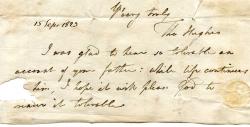 Yours truly
15 Sepr 1823
Tho Hughes
I was glad to hear so tolerable an
account of your father: while life continues
him, I hope it will please God to
render it tolerable.